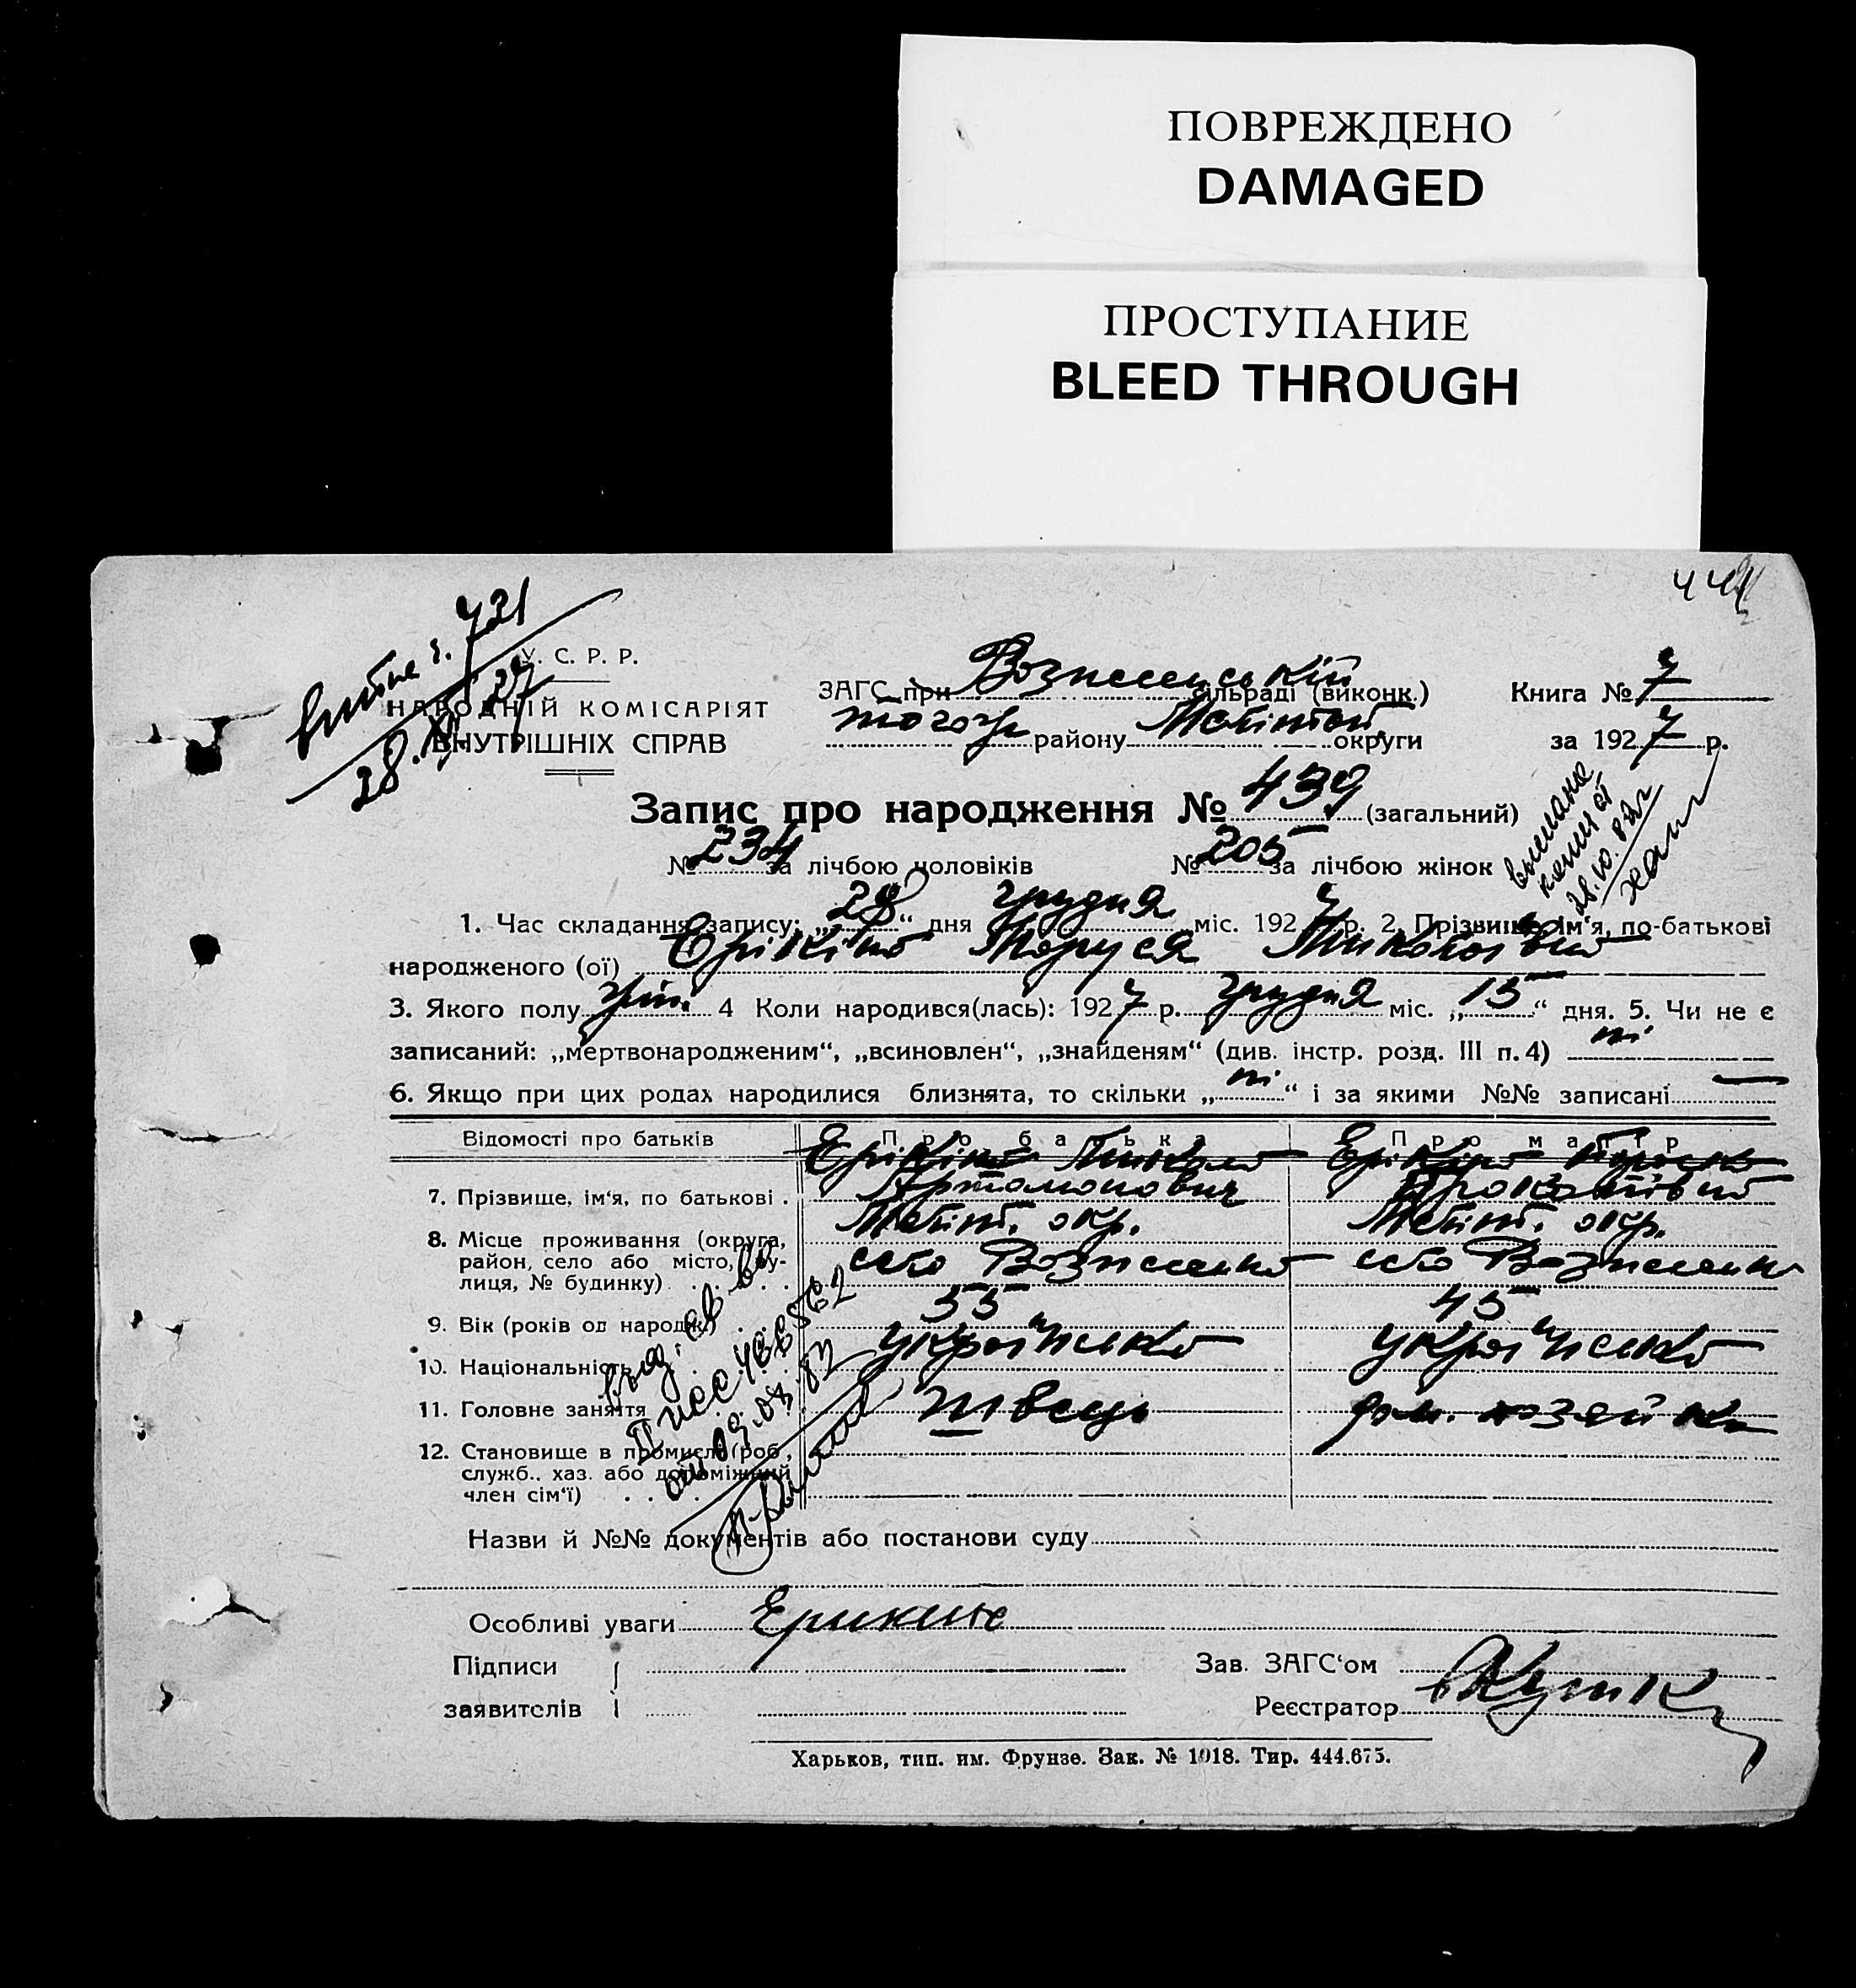 ПОВРЕЖДЕНО
DAMAGED
ПРОСТУПАНИЕ
BLEED THROUGH
721
28. XII 27
У. С. Р. Р.
НАРОДНІЙ КОМІСАРІЯТ
ВНУТРІШНІХ СПРАВ
ЗАГС при Вознесенській сільраді (виконк.)
того ж району Меліт. округи
Книга № 7
за 1927 р.
Запис про народження № 439 (загальний)
№ 234 за лічбою чоловіків № 205 за лічбою жінок
28.10.82г
1. Час складання запису: „28“ дня грудня міс. 1927 р. 2. Прізвище, ім‘я, по-батькові
народженого (ої) Маруся Миколаївна
3. Якого полу жін. 4 Коли народився(лась): 1927 р. грудня міс. „15“ дня. 5. Чи не є
записаний: „мертвонародженим“, „всиновлен“, „знайденям“ (див. інстр. розд. III п. 4) ні
6. Якщо при цих родах народилися близнята, то скільки „ні“ і за якими №№ записані —
Відомості про батьків Про батька Про матір
7. Прізвище, ім‘я, по батькові . Микола Артамонович
8. Місце проживання (округа, район, село або місто, вулиця, № будинку) Меліт. окр. село Вознесенка Меліт. окр. село Вознесенка
9. Вік (років од народж.) 55 45
10. Національність українка українка
11. Головне заняття швець дом. хозяйка
12. Становище в промислі (роб.,
служб., хаз. або допоміжний
член сім‘ї)
Назви й №№ документів або постанови суду
Особливі уваги
Підписи
заявителів
Зав. ЗАГС‘ом
Реєстратор
Харьков, тип. им. Фрунзе. Зак. № 1018. Тир. 444.675.